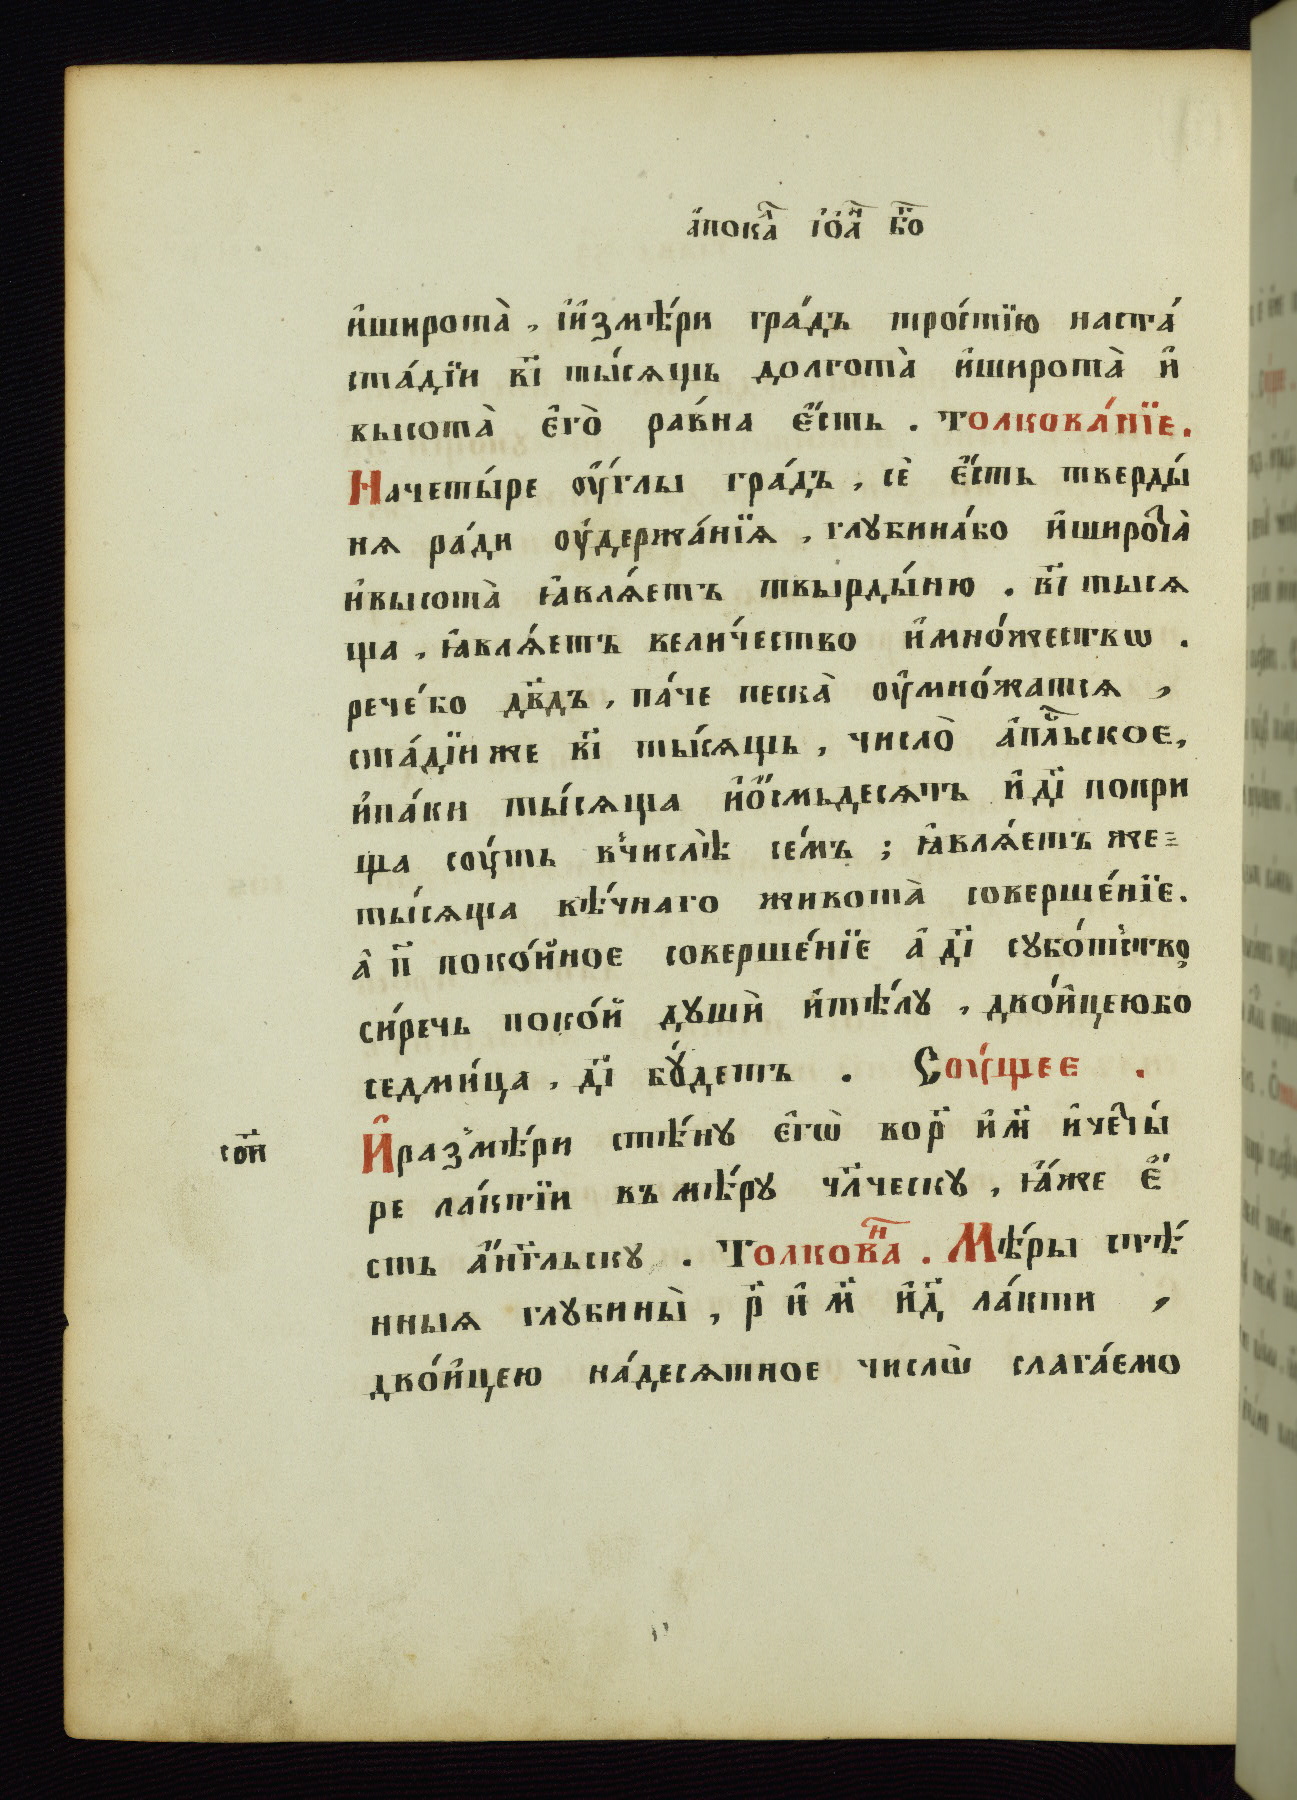 а҆пока́л і҆ѡ҆а́н бг҃о
и҆широта̀, і҆и҆змѣ́ри гра́дъ тро́стїю наста́
ста́дїи в҃і ты́сѧщь долгота̀ и҆широта̀ и҆
высота̀ є҆го̀ ра́вна є҆́сть . Толкова́нїе.
Начеты́ре ѹ҆́глы гра́дъ, сѐ є҆́сть тверды́
нѧ ра́ди ѹ҆держа́нїѧ, глꙋбина́бо и҆широта̀
и҆высота̀ ꙗ҆влѧ́етъ твырды́ню . в҃і тысѧ
ща, ꙗ҆влѧ́етъ вели́чество и҆мно́жествѡ .
рече́бо дв҃дъ, па́че песка̀ ѹ҆мно́жатсѧ ,
ста́дїи же в҃і ты́сѧщь, число̀ а҆пⷭ҇льское,
и҆па́ки ты́сѧща и҆о҆́смьдесѧтъ и҆ д҃і попри
ща сѹ́ть в̾числѣ̀ се́мъ ; ꙗ҆влѧ́етъ же=
ты́сѧща вѣ́чнаго живота̀ соверше́нїе.
а҆ п҃ поко́йное соверше́нїе а҆ д҃і сꙋбо́тство,
си́речь поко́й дꙋшѝ и҆тѣ́лꙋ, дво́ицеюбо
седми́ца, д҃і бꙋ́детъ . Сѹ́щее .
сои҃
И҆размѣ́ри стѣ́нꙋ є҆гѡ̀ во р҃ и҆ м҃ и҆четы́
ре ла́ктїи въ мѣ́рꙋ чл҃ческꙋ, ꙗ҆́же є҆́
сть а҆́нг҃льскꙋ . Толкова́н . Мѣ́ры стѣ́
нныѧ глꙋбины̀, р҃ и҆ м҃ и҆ д҃ ла́кти ,
дво́ицею на́десѧтное числѡ̀ слага́емо